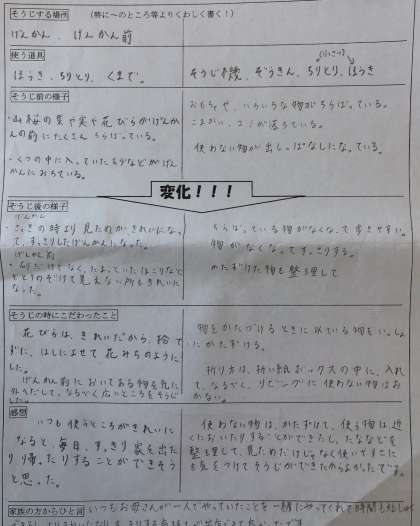 そうじする場所 (特に〜のところ等よりくわしく書く！)
げんかん、げんかん前
使う道具
ほうき、ちりとり、くまで。
そうじ機、ぞうきん、ちりとり、ほうき
そうじ前の様子
・山桜の葉や実や花びらがげんか
んの前にたくさんちらばっている。
・くつの中に入っていたすなどがげん
かんにおちている。
おもちゃ、いろいろな物がちらばっている。
こまかい、ゴミが落ちている。
使わない物が出しっぱなしになっている。
変化！！！
そうじ後の様子
げんかん
・さっきの時より見ためがきれいになっ
て、すっきりしたげんかんになった。
げんかん前
なくて、たまっていたほこりなど
見えない所もきれいに
なった。
ちらばっている物がなくなって歩きやすい。
物がなくなってすっきりする。
かたずけた物も整理して
そうじの時にこだわったこと
花びらは、きれいだから、捨て
ずに、はしによせて花みちのように
した。
げんかん前においてある物を先に
外へだして、なるべく広いところをそうじ
した。
物をかたづけるときに似ている物をいっしょ
にかたずける。
折り方は、折り紙ボックスの中に、入れ
て、なるべく、リビングに使わない物はお
かない。
感想
いつも使うところがきれいに
なると、毎日、すっきり家を出た
り帰ったりすることができそう
と思った。
使わない物は、かたずけて、使う物は近
くにおいたりすることができたし、たななどを
整理して、見ためだけじゃなく使いやすさに
も気をつけてそうじができたからよかったです。
家族の方からひと言
いつもお母さんが一人でやっていたことを一緒にやってくれて時間も